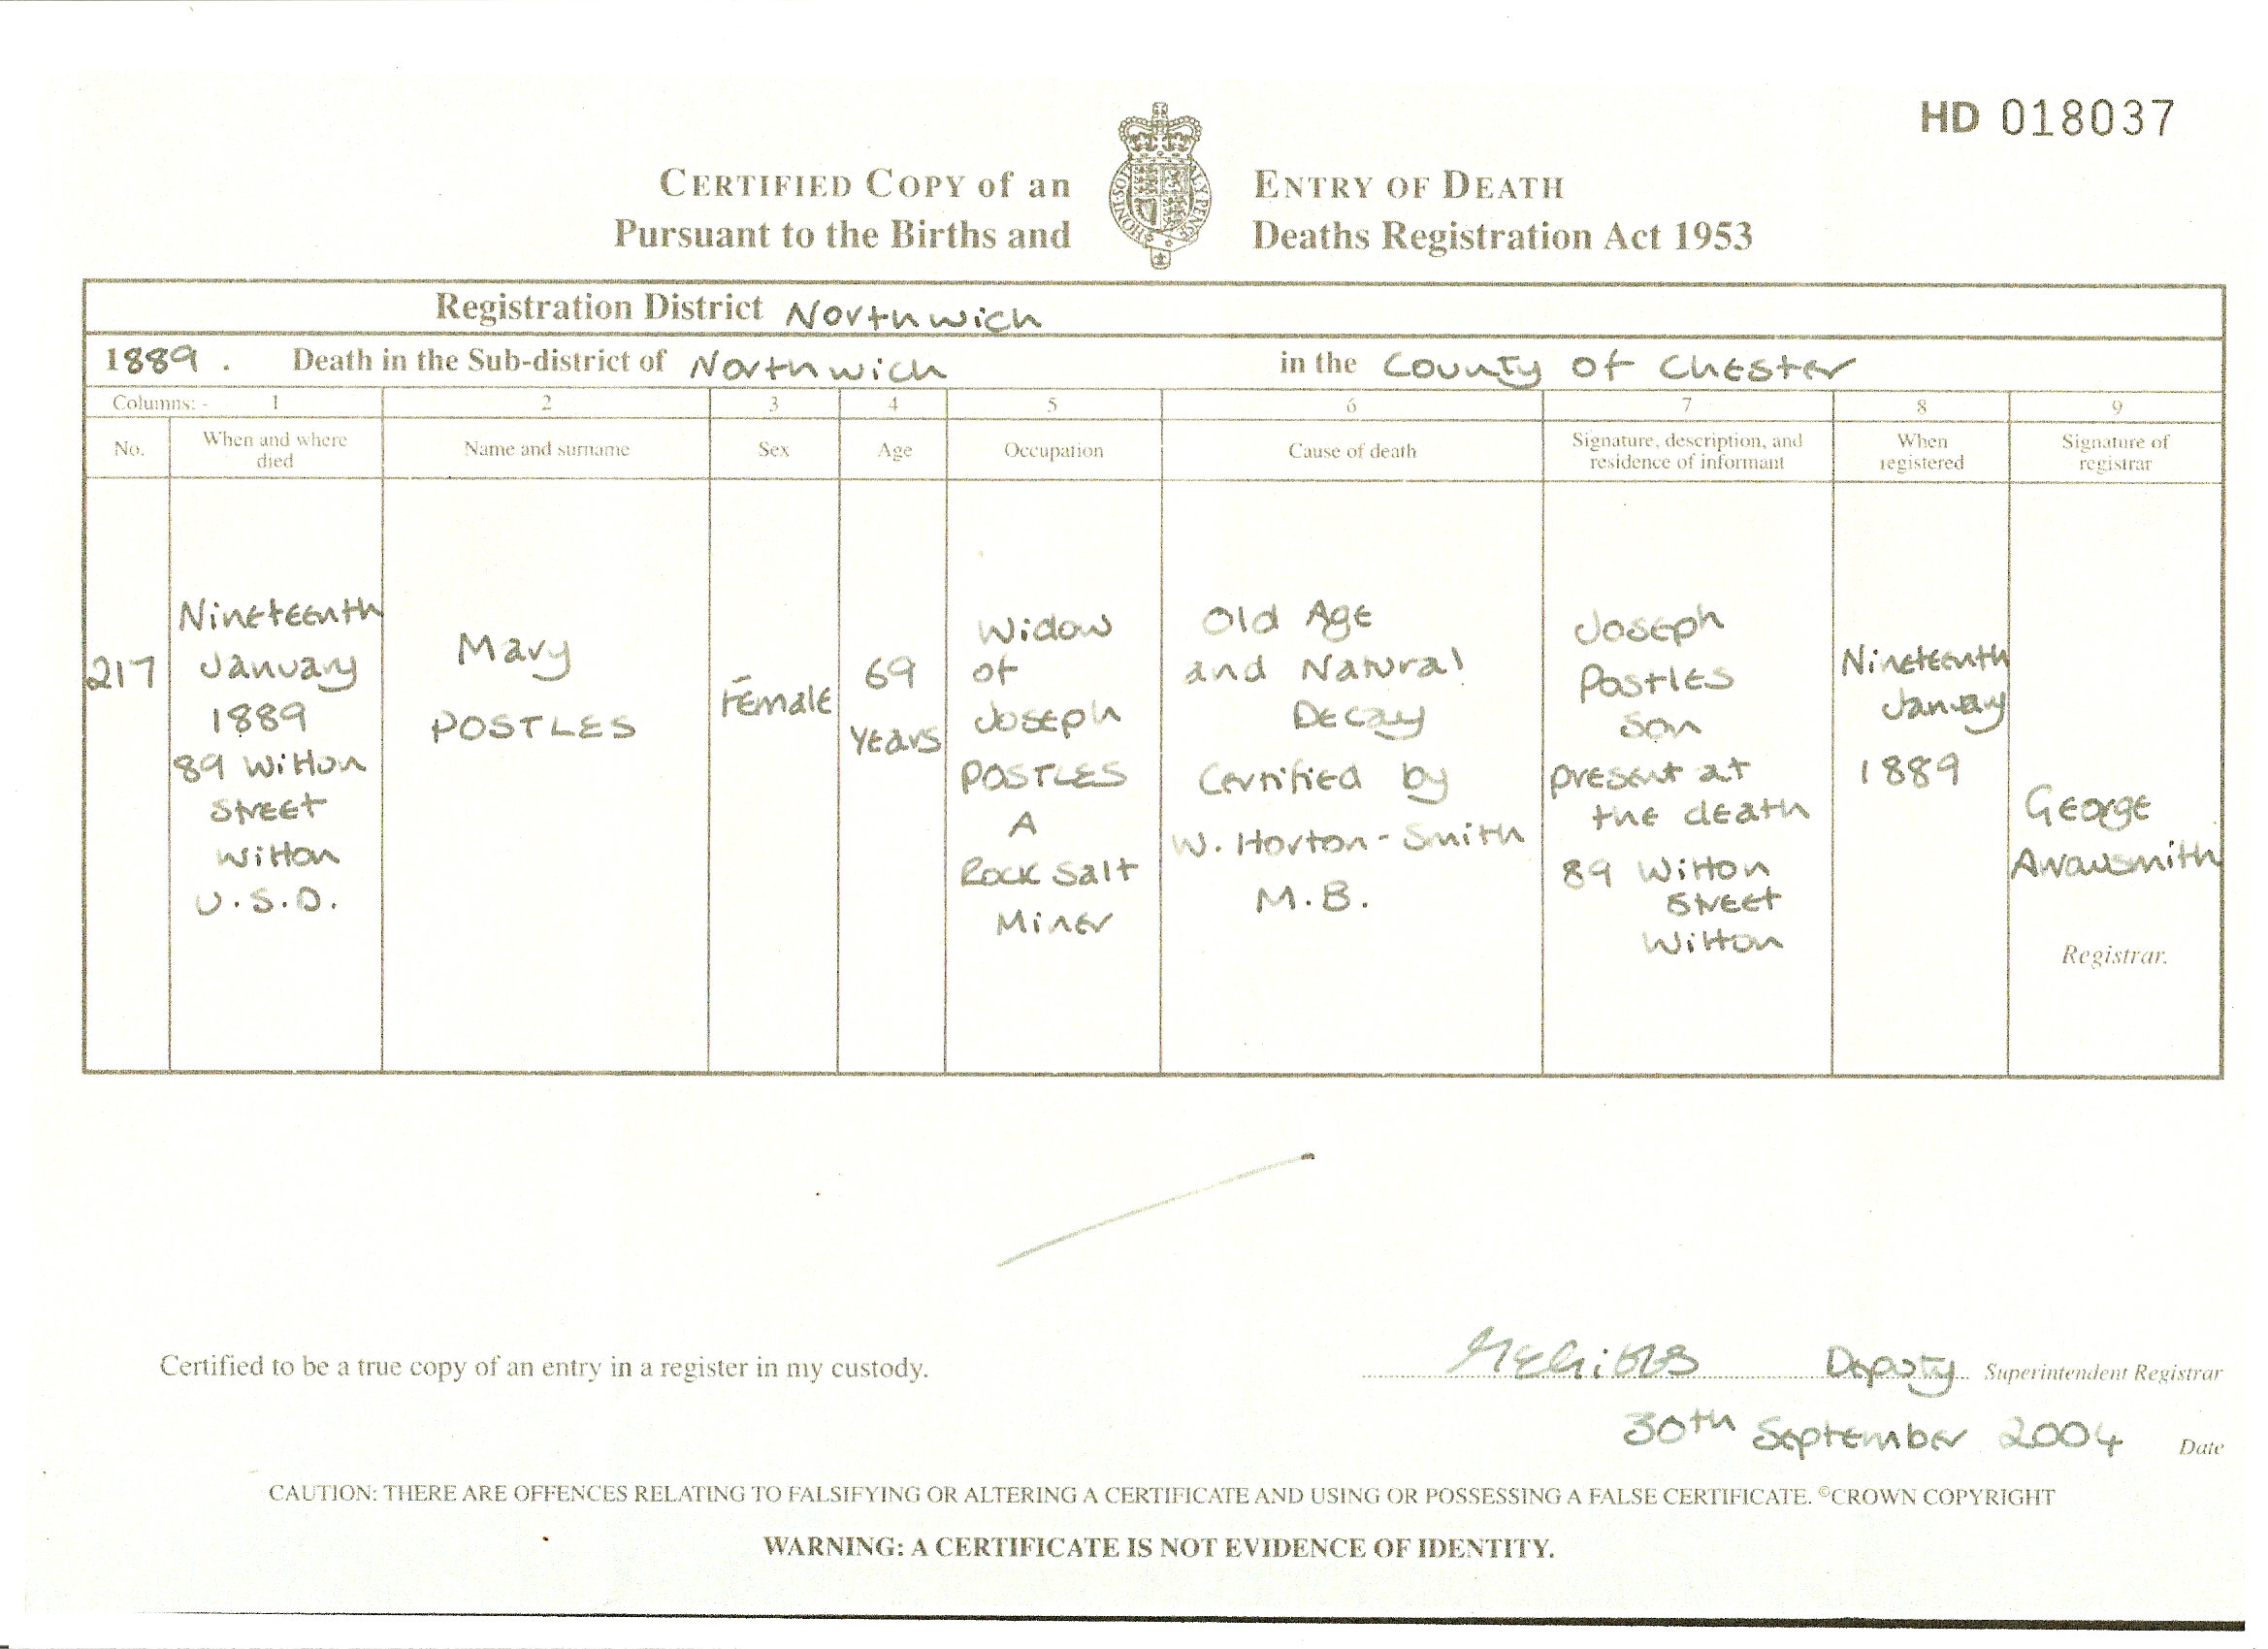 HD 018037
CERTIFIED COPY of an ENTRY OF DEATH
Pursuant to the Births and Deaths Registration Act 1953
Registration District Northwich
1889. Death in the Sub-district of Northwich in the County of Chester
Columns:- 1 2 3 4 5 6 7 8 9
No.
When and where
died
Name and surname
Sex
Age
Occupation
Cause of death
Signature, description, and
residence of informant
When
registered
Signature of
registrar
217
Nineteenth
January
1889
89 Witton
Street
Witton
U.S.D.
Mary
POSTLES
Female
69
Years
Widow
of
Joseph
POSTLES
A
Rock Salt
Miner
Old Age
and Natural
Decay
Certified by
W. Horton-Smith
M.B.
Joseph
Postles
Son
present at
the death
89 Witton
Street
Witton
Nineteenth
January
1889
George
Registrar.
Certified to be a true copy of an entry in a register in my custody.
Deputy Superintendent Registrar
30th September 2004 Date
CAUTION: THERE ARE OFFENCES RELATING TO FALSIFYING OR ALTERING A CERTIFICATE AND USING OR POSSESSING A FALSE CERTIFICATE. ©CROWN COPYRIGHT
WARNING: A CERTIFICATE IS NOT EVIDENCE OF IDENTITY.